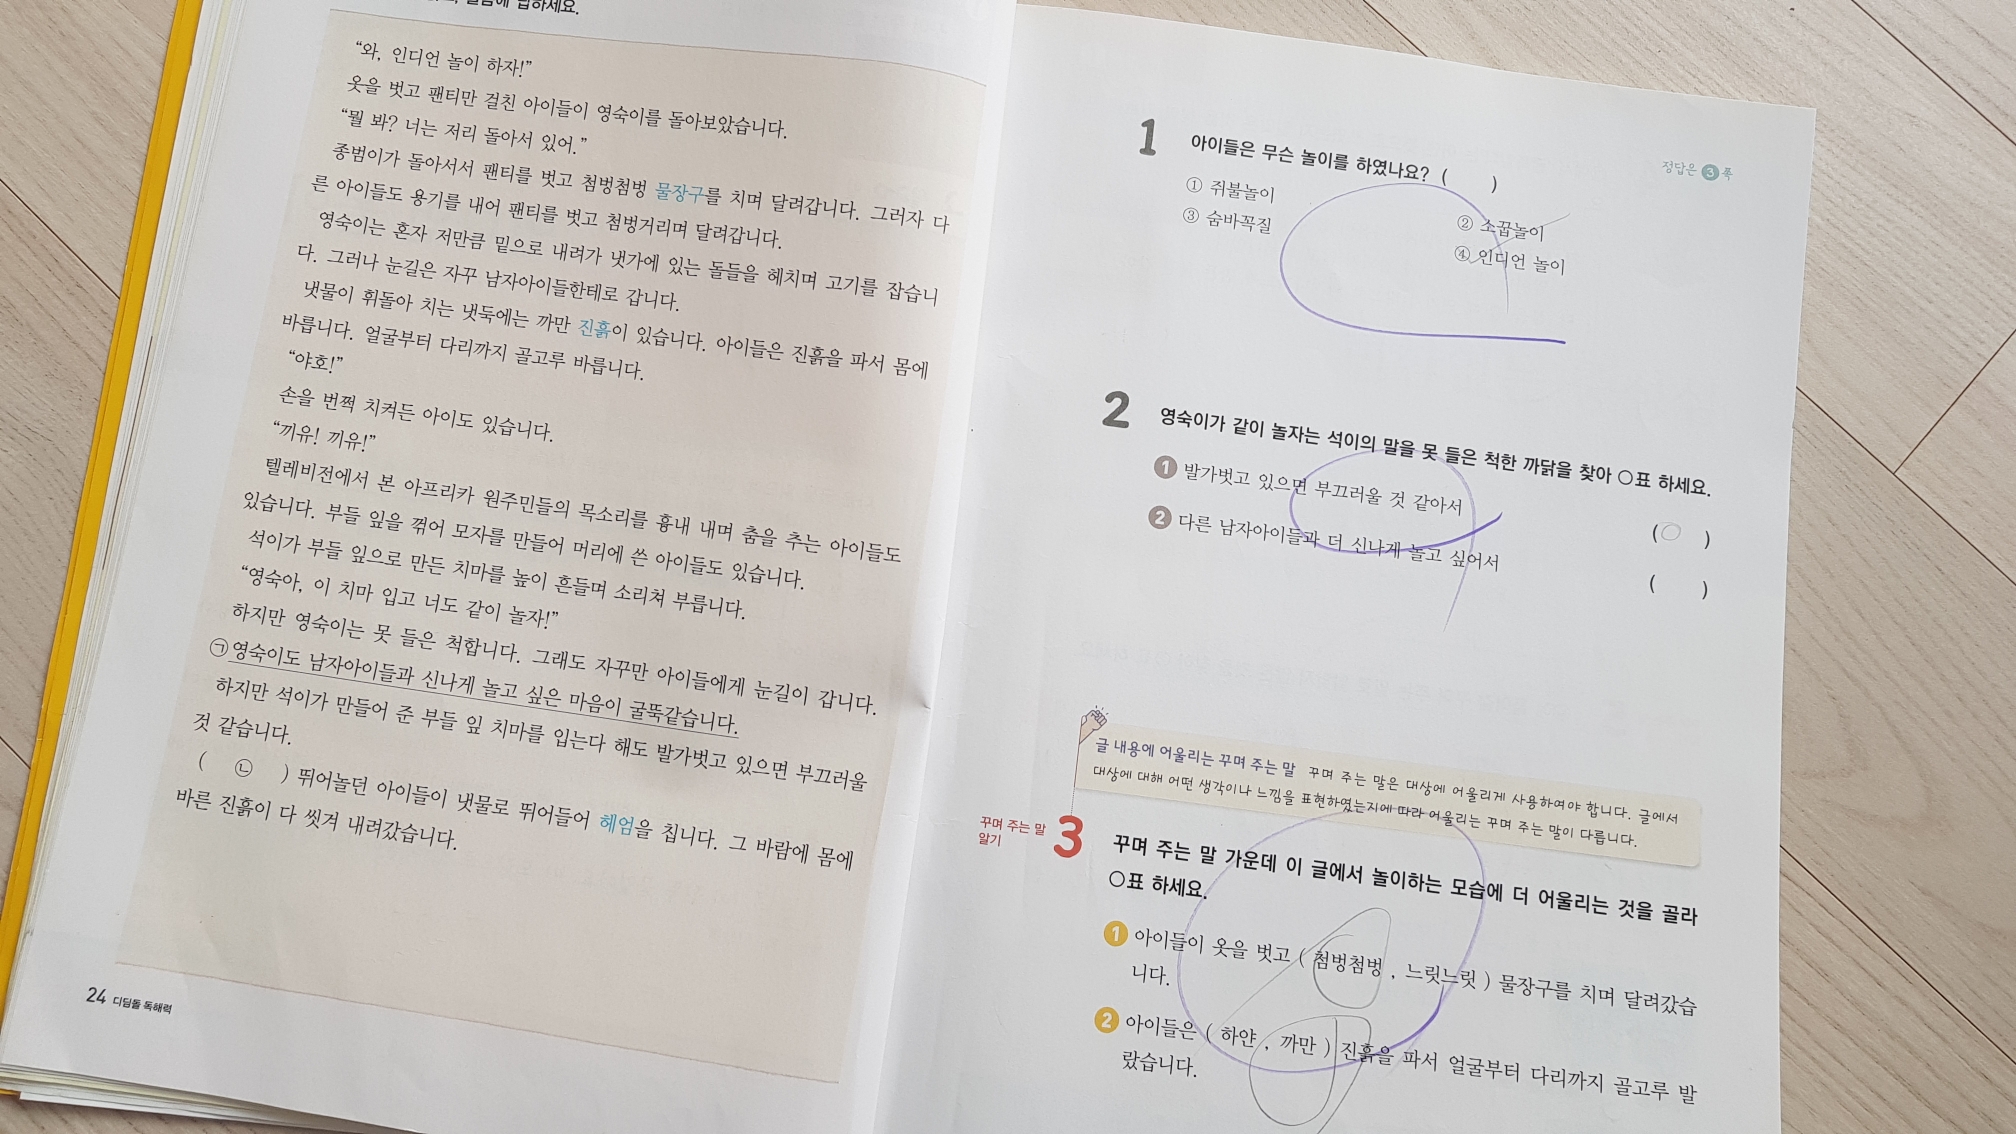 답하세요.
“와, 인디언 놀이 하자!”
옷을 벗고 팬티만 걸친 아이들이 영숙이를 돌아보았습니다.
“뭘 봐? 너는 저리 돌아서 있어.”
종범이가 돌아서서 팬티를 벗고 첨벙첨벙 물장구를 치며 달려갑니다. 그러자 다
른 아이들도 용기를 내어 팬티를 벗고 첨벙거리며 달려갑니다.
영숙이는 혼자 저만큼 밑으로 내려가 냇가에 있는 돌들을 헤치며 고기를 잡습니
다. 그러나 눈길은 자꾸 남자아이들한테로 갑니다.
냇물이 휘돌아 치는 냇둑에는 까만 진흙이 있습니다. 아이들은 진흙을 파서 몸에
바릅니다. 얼굴부터 다리까지 골고루 바릅니다.
“야호!”
손을 번쩍 치켜든 아이도 있습니다.
“끼유! 끼유!”
텔레비전에서 본 아프리카 원주민들의 목소리를 흉내 내며 춤을 추는 아이들도
있습니다. 부들 잎을 꺾어 모자를 만들어 머리에 쓴 아이들도 있습니다.
석이가 부들 잎으로 만든 치마를 높이 흔들며 소리쳐 부릅니다.
“영숙아, 이 치마 입고 너도 같이 놀자!”
하지만 영숙이는 못 들은 척합니다. 그래도 자꾸만 아이들에게 눈길이 갑니다.
㉠영숙이도 남자아이들과 신나게 놀고 싶은 마음이 굴뚝같습니다.
하지만 석이가 만들어 준 부들 잎 치마를 입는다 해도 발가벗고 있으면 부끄러울
것 같습니다.
( ㉡ ) 뛰어놀던 아이들이 냇물로 뛰어들어 헤엄을 칩니다. 그 바람에 몸에
바른 진흙이 다 씻겨 내려갔습니다.
24 디딤돌 독해력
정답은 3쪽
1 아이들은 무슨 놀이를 하였나요? ( )
① 쥐불놀이 ② 소꿉놀이
③ 숨바꼭질 ④ 인디언 놀이
2 영숙이가 같이 놀자는 석이의 말을 못 들은 척한 까닭을 찾아 ○표 하세요.
1 발가벗고 있으면 부끄러울 것 같아서 (○)
2 다른 남자아이들과 더 신나게 놀고 싶어서 ( )
글 내용에 어울리는 꾸며 주는 말 꾸며 주는 말은 대상에 어울리게 사용하여야 합니다. 글에서
대상에 대해 어떤 생각이나 느낌을 표현하였는지에 따라 어울리는 꾸며 주는 말이 다릅니다.
꾸며 주는 말
알기
3 꾸며 주는 말 가운데 이 글에서 놀이하는 모습에 더 어울리는 것을 골라
○표 하세요.
1 아이들이 옷을 벗고 ( 첨벙첨벙 , 느릿느릿 ) 물장구를 치며 달려갔습
니다.
2 아이들은 ( 하얀 , 까만 ) 진흙을 파서 얼굴부터 다리까지 골고루 발
랐습니다.